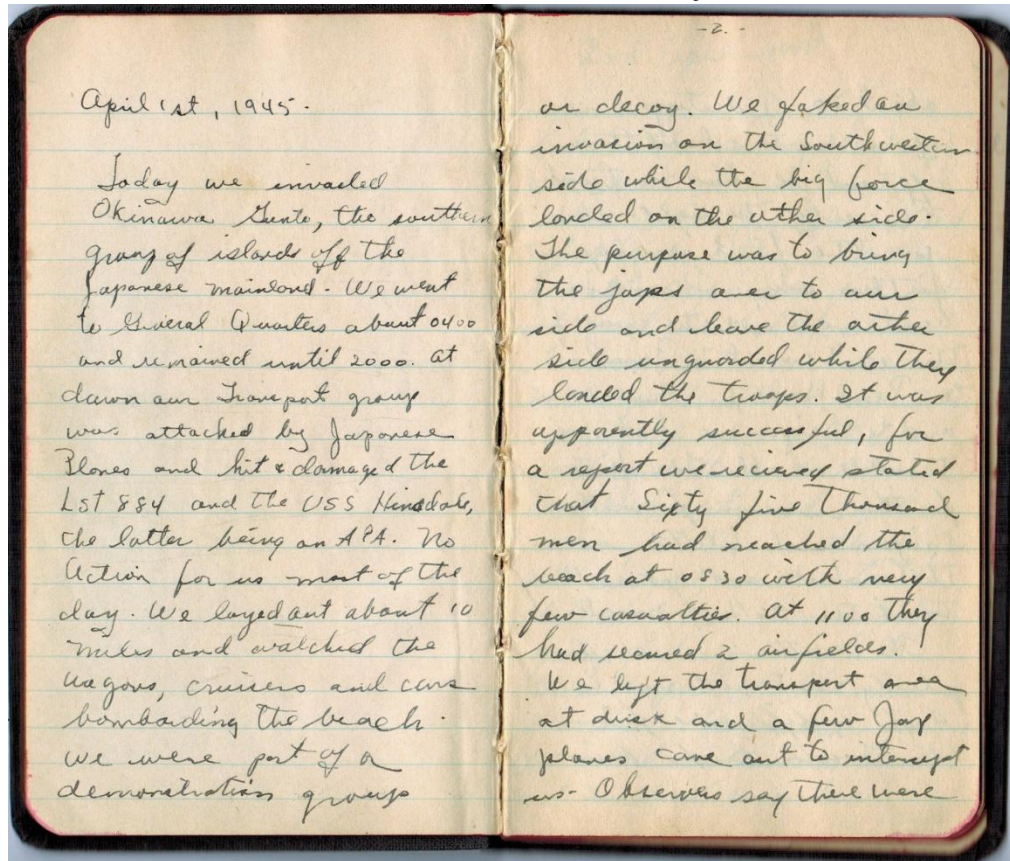 April 1st, 1945.
Today we invaded
Okinawa Gunto, the southern
group of islands off the
Japanese mainland. We went
to General Quarters about 0400
and remained until 2000. At
dawn our Transport group
was attacked by Japanese
Planes and hit & damaged the
LST 884 and the USS Hinsdale,
the latter being an APA. No
Action for us most of the
day. We layed out about 10
miles and watched the
wagons, cruisers and cans
bombarding the beach.
We were part of a
demonstration group
-2.-
or decoy. We faked an
invasion on the Southwestern
side while the big force
landed on the other side.
The purpose was to bring
the japs over to our
side and leave the other
side unguarded while they
landed the troops. It was
apparently successful, for
a report we recieved stated
that Sixty five Thousand
men had reached the
beach at 0830 with very
few casualties. At 1100 they
had secured 2 airfields.
We left the transport area
at dusk and a few Jap
planes came out to intercept
us. Observers say there were